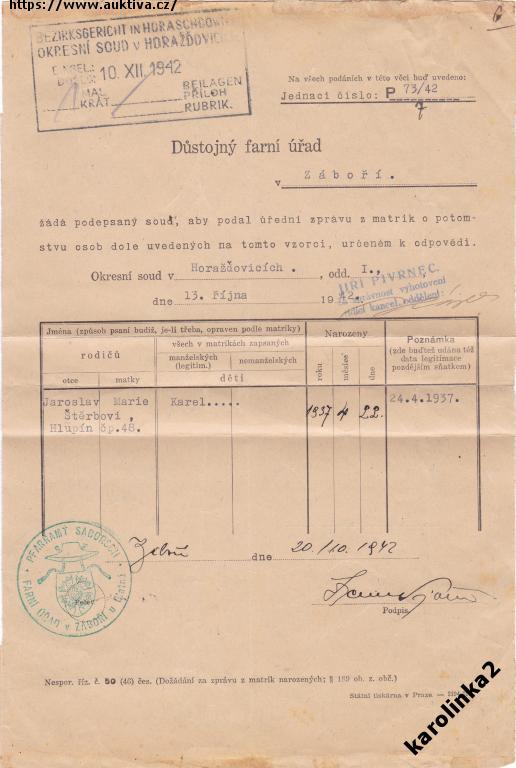 https://www.auktiva.cz/
BEZIRKSGERICHT IN HORASCHDOWITZ
OKRESNÍ SOUD V HORAŽĎOVICÍCH
10. XII. 1942
MAL BEILAGEN
KRÁT PŘÍLOH
RUBRIK.
Na všech podáních v této věci buď uvedeno:
Jednací číslo: P 73/42
7
Důstojný farní úřad
v Záboří.
žádá podepsaný soud, aby podal úřední zprávu z matrik o potom-
stvu osob dole uvedených na tomto vzorci, určeném k odpovědi.
Okresní soud v Horažďovicích . , odd. I.,
JIŘÍ PIVRNEC.
dne 13. října 1942.
správnost vyhotovení
Jména (způsob psaní budiž, je-li třeba, opraven podle matriky)
rodičů
otce matky
všech v matrikách zapsaných
manželských (legitim.) nemanželských
dětí
Narozeny
roku měsíce dne
Poznámka
(zde buďtež udána též data legitimace pozdějším sňatkem)
Jaroslav Marie Karel..... 1937 4 22. 24.4.1937.
Štěrbovi ,
Hlupín čp.48.
PFARRAMT SABORSCH
FARNÍ ÚŘAD v ZÁBOŘÍ u Blatné
Pečeť
dne 20./10. 1942
Podpis
Nespor. říz. č. 50 (46) čes. (Dožádání za zprávu z matrik narozených; § 189 ob. z. obč.)
Státní tiskárna v Praze —
karolinka2